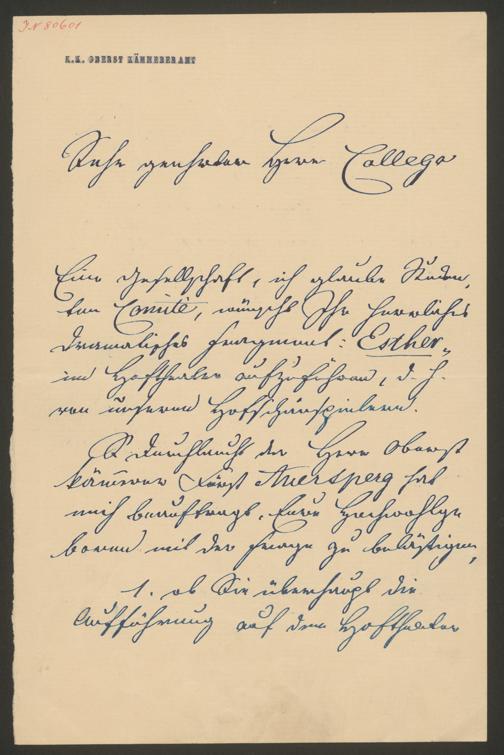 J.N 80601
K.K. OBERST KÄMMERERAMT
Sehr geehrter Herr Collega
Eine Gesellschaft, ich glaube Studen-
ten Comité, wünscht Ihr herrliches
dramatisches Fragment: Esther„
im Hoftheater aufzuführen, d. h.
von unseren Hofschauspielern.
Se Durchlaucht der Herr Oberst
kämmerer Fürst Auersperg hat
mich beauftragt, Eure Hochwohlge
boren mit der Frage zu belästigen,
1. ob Sie überhaupt die
Aufführung auf dem Hoftheater